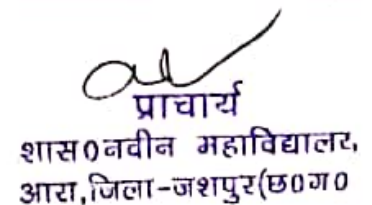 प्राचार्य
शास०नवीन महाविद्यालर,
आरा,जिला-जशपुर(छ०ग०